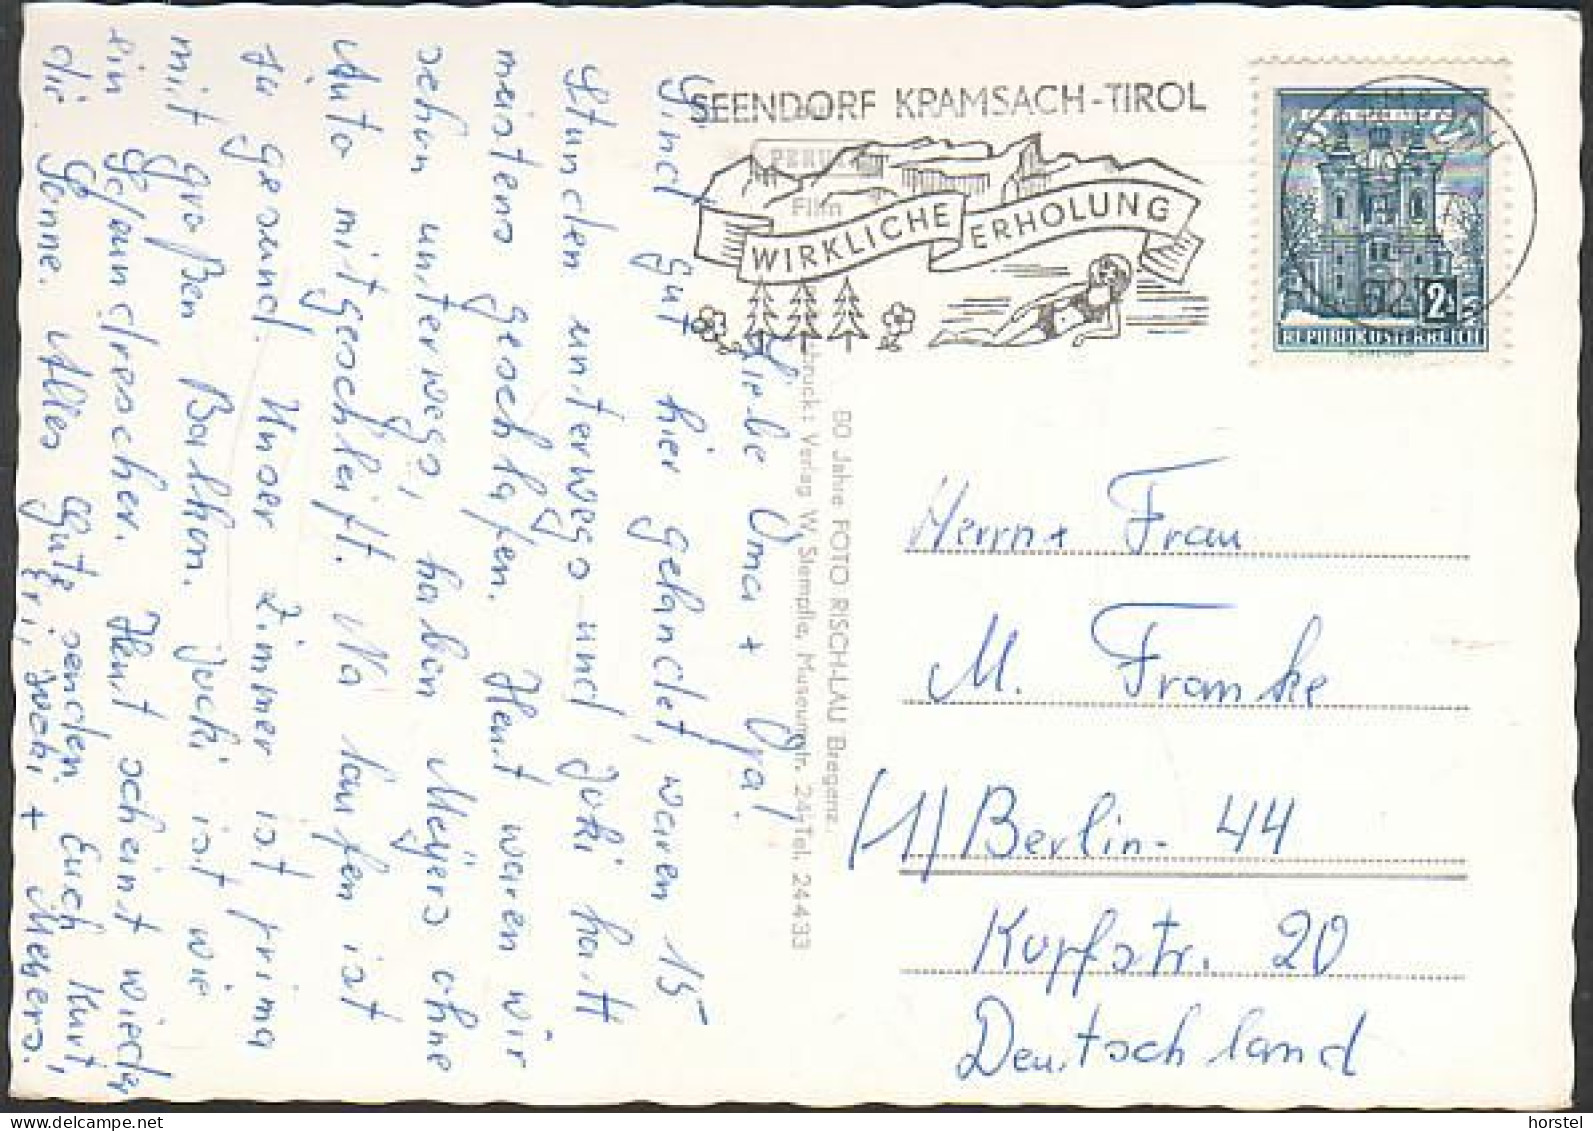 SEENDORF KRAMSACH-TIROL
PERU
Film
WIRKLICHE ERHOLUNG
2
REPUBLIK ÖSTERREICH
60 Jahre FOTO RISCH-LAU Bregenz.
druck: Verlag W. Stempfle, Museumstr. 24, Tel. 24433
Liebe Oma + Opa!
Sind gut hier gelandet, waren 15
Stunden unterwegs und Jucki hatt
meistens geschlafen. Heut waren wir
schon unterwegs, haben Meyers ohne
Auto mitgeschleift. Na laufen ist
ja gesund. Unser Zimmer ist prima
mit großen Balkon. Jucki ist wie
ein Schlaundrescher. Heut scheint wieder
die Sonne. Alles Gute senden Euch Kurt,
Eri, Jucki + Meyers.
Herrn + Frau
M. Franke
(1) Berlin- 44
Kopfstr. 20
Deutschland
horstel